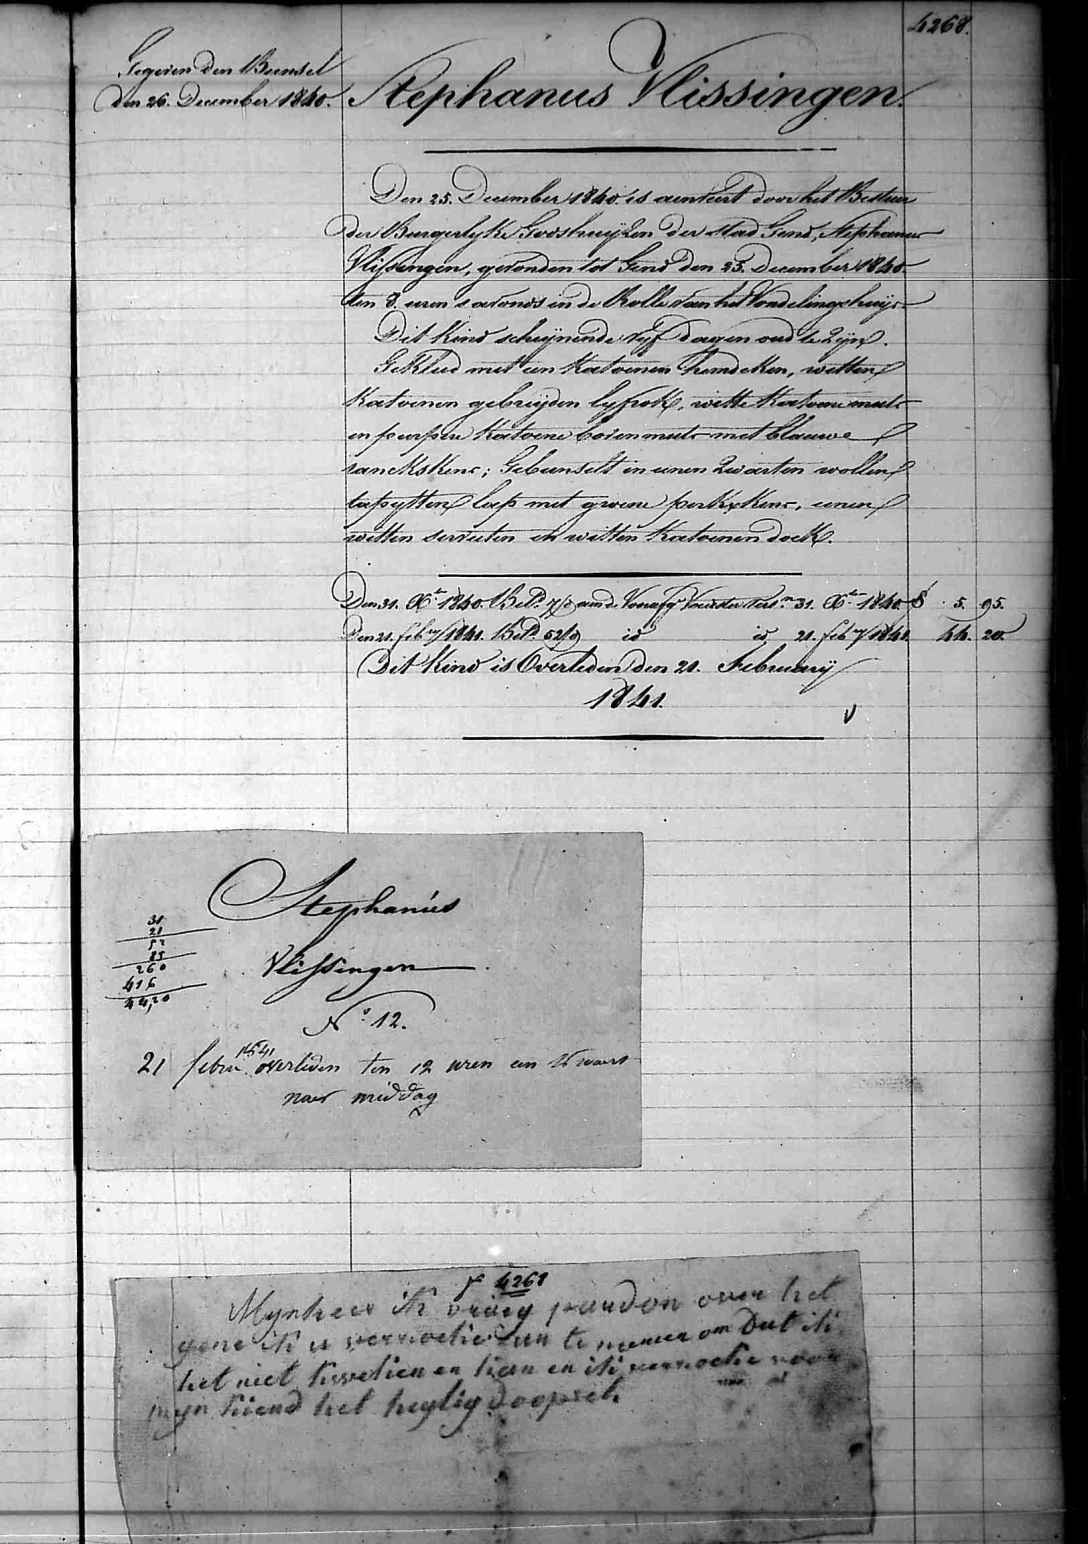 4268.
Gegeven den Bunsel
den 26. December 1840.
Stephanus Vlissingen.
Den 25. December 1840. is aenveirt door het Bestier
der Burgerlyke Godshuijzen der stad Gend, Stephanus
Vlissingen, gevonden tot Gend den 25. December 1840
ten 8. uren s avonds in de Rolle van het Vondelingshuijs
Dit kind scheijnende vijf dagen oud te zijn.
Gekleed met een katoenen hemdeken, witten
katoenen gebreijden lyfrok, witte katoene muts
en purpere katoene bovenmuts met blauwe
ranckskens; Gebunselt in eenen zwarten wollen
tapytten lap met groene perkxkens, eenen
witten servieten en witten katoenen doek.
Den 31. Xbr 1840. Betd. 7/d aan de Voorafgt Voedster Pers.n 31. Xbr 1840 8 5. 95.
Den 21. feby/1841. Betd. 52/d id id 21. feby/1841. 44. 20.
Dit kind is Overleden den 21. February
1841.
V
Stephanus
Vlissingen
N.o 12.
31
21
52
85
260
416
44,20
21 febru 1841 overleden ten 12 uren een kwart
naer middag
f 4268
Mynheer ik vraeg pardon over het
gene ik u versoeke aen te nemen om dat ik
het niet kwekien en kan en ik versoeke voor
myn kiend het heylig doopsel